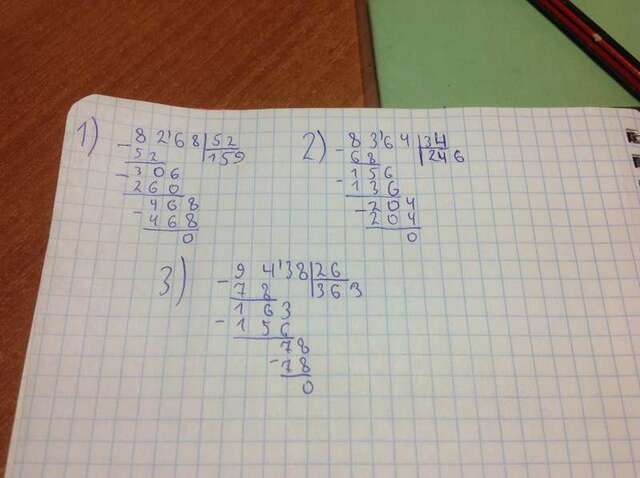 1) - 8 2'6 8 | 52
5 2 | 159
- 3 0 6
2 6 0
- 4 6 8
4 6 8
0
2) - 8 3'6 4 | 34
6 8 | 246
- 1 5 6
1 3 6
- 2 0 4
2 0 4
0
3) - 9 4'3 8 | 26
7 8 | 363
- 1 6 3
1 5 6
- 7 8
7 8
0